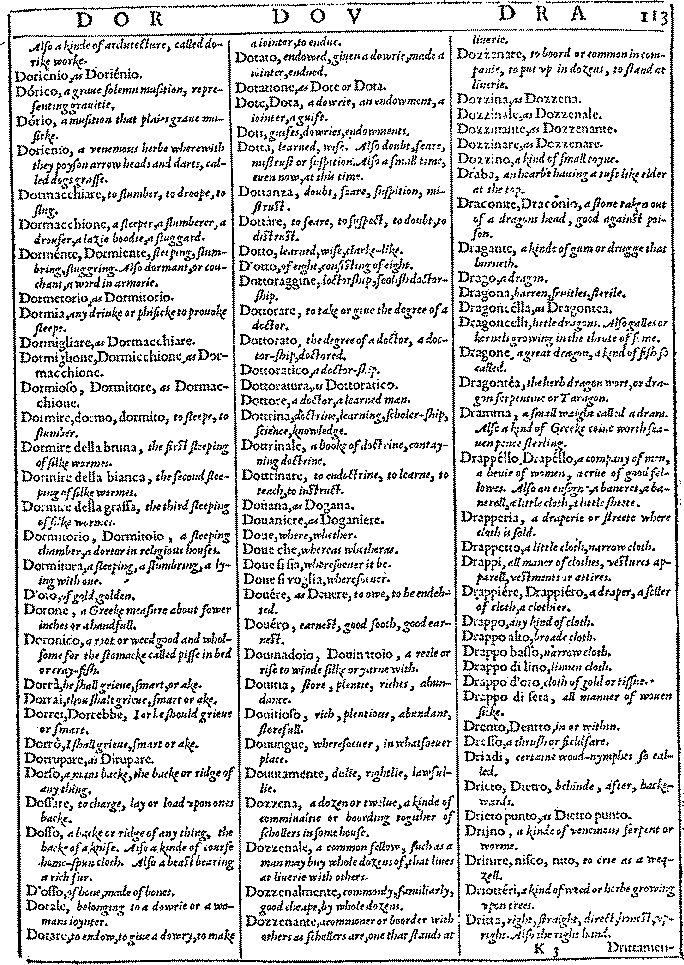 DOR DOV DRA 113
Also a kinde of architecture, called do-
rike worke.
Doricnio, as Doriénio.
Dórico, a graue solemn musition, repre-
senting grauitie.
Dório, a musition that plaies graue mu-
sicke.
Doriénio, a venemous herbe wherewith
they poyson arrow heads and darts, cal-
led dogs grasse.
Dormacchiare, to slumber, to droope, to
slug.
Dormacchione, a sleeper, a slumberer, a
drouser, a lazie boodie, a sluggard.
Dorménte, Dormiente, sleeping, slum-
bring, sluggring. Also dormant, or cou-
chant, a word in armorie.
Dormetorio, as Dormitorio.
Dormia, any drinke or phisicke to prouoke
sleepe.
Dormigliare, as Dormacchiare.
Dormiglione, Dormicchione, as Dor-
macchione.
Dormioso, Dormitore, as Dormac-
chione.
Dormire, dormo, dormito, to sleepe, to
slumber.
Dormire della bruna, the first sleeping
of silke wormes.
Dormire della bianca, the second slee-
ping of silke wormes.
Dormire della grassa, the third sleeping
of silke wormes.
Dormitorio, Dormitoio, a sleeping
chamber, a dortor in religious houses.
Dormitura, a sleeping, a slumbring, a ly-
ing with one.
D'oro, of gold, golden.
Dorone, a Greeke measure about fower
inches or a handfull.
Doronico, a root or weed good and whol-
some for the stomacke called pisse in bed
or cray-fish.
Dorrà, he shall grieue, smart, or ake.
Dorrai, thou shalt grieue, smart or ake.
Dorrei, Dorrebbe, I or he should grieue
or smart.
Dorrò, I shall grieue, smart or ake.
Dorrupare, as Dirupare.
Dorso, a mans backe, the backe or ridge of
any thing.
Dossare, to charge, lay or load vpon ones
backe.
Dosso, a backe or ridge of any thing, the
backe of a knife. Also a kinde of course
home-spun cloth. Also a beast bearing
a rich fur.
D'osso, of bone, made of bones.
Dotale, belonging to a dowrie or a wo-
mans ioynter.
Dotare, to endow, to giue a dowry, to make
a iointer, to endue.
Dotato, endowed, giuen a dowrie, made a
iointer, endued.
Dotatione, as Dote or Dota.
Dote, Dota, a dowrie, an endowment, a
iointer, a guift.
Doti, guifts, dowries, endowments.
Dotta, learned, wise. Also doubt, feare,
mistrust or suspition. Also a small time,
euen now, at this time.
Dottanza, doubt, feare, suspition, mi-
strust.
Dottare, to feare, to suspect, to doubt, to
distrust.
Dotto, learned, wise, clarke-like.
D'otto, of eight, consisting of eight.
Dottoraggine, doctorship, foolish doctor-
ship.
Dottorare, to take or giue the degree of a
doctor.
Dottorato, the degree of a doctor, a doc-
tor-ship, doctored.
Dottoratico, a doctor-ship.
Dottoratura, as Dottoratico.
Dottore, a doctor, a learned man.
Dottrina, doctrine, learning, scholer-ship,
science, knowledge.
Dottrinale, a booke of doctrine, contay-
ning doctrine.
Dottrinare, to endoctrine, to learne, to
teach, to instruct.
Douana, as Dogana.
Douaniere, as Doganiere.
Doue, where, whether.
Doue che, whereas whatheras.
Doue si sia, wheresoeuer it be.
Doue si voglia, wheresoeuer.
Douére, as Deuere, to owe, to be endeb-
ted.
Douéro, earnest, good sooth, good ear-
nest.
Dounadoio, Douinttoio, a reele or
rise to winde silke or yarne with.
Douitia, store, plentie, riches, abun-
dance.
Douitioso, rich, plentious, abundant,
storefull.
Dounque, wheresoeuer, in whatsoeuer
place.
Douutamente, dulie, rightlie, lawful-
lie.
Dozzena, a dozen or twelue, a kinde of
comminaltie or boording together of
schollers in some house.
Dozzenale, a common fellow, such as a
man may buy whole dozens of, that liues
at liuerie with others.
Dozzenalmente, commonly, familiarly,
good cheape, by whole dozens.
Dozzenante, a commoner or boorder with
others as schollers are, one that stands at
liuerie.
Dozzenare, to boord or common in com-
panie, to put vp in dozens, to stand at
liuerie.
Dozzina, as Dozzena.
Dozzinale, as Dozzenale.
Dozzinante, as Dozzenante.
Dozzinare, as Dozzenare.
Dozzino, a kind of small togue.
Draba, an hearbe hauing a tuft like elder
at the top.
Draconite, Dracónia, a stone taken out
of a dragons head, good against poi-
son.
Dragante, a kinde of gum or drugge that
burneth.
Drago, a dragon.
Dragona, barren, fruitles, sterile.
Dragontélla, as Dragontea.
Dragoncelli, little dragons. Also galles or
kernels growing in the throte of some.
Dragone, a great dragon, a kind of fish so
called.
Dragontéa, the herb dragon wort, or dra-
gon serpentine or Taragon.
Dramma, a small waight called a dram.
Also a kind of Greeke coine worth sea-
uen pence sterling.
Drappéllo, Drapéllo, a company of men,
a beuie of women, a crue of good fel-
lowes. Also an ensign, a baneret, a ba-
neroll, a little cloth, a little sheete.
Drapperia, a draperie or streete where
cloth is sold.
Drappetto, a little cloth, narrow cloth.
Drappi, all maner of clothes, vestures ap-
parell, vestments or attires.
Drappiére, Drappiéro, a draper, a seller
of cloth, a clothier.
Drappo, any kind of cloth.
Drappo alto, broade cloth.
Drappo basso, narrow cloth.
Drappo di lino, linnen cloth.
Drappo d'oro, cloth of gold or tissue.
Drappo di seta, all manner of wouen
silke.
Drento, Dentro, in or within.
Dresso, a thrush or fieldfare.
Driadi, certaine wood-nymphes so cal-
led.
Drieto, Dietro, behinde, after, backe-
wards.
Drieto punto, as Dietro punto.
Drijno, a kinde of venemous serpent or
worme.
Drinire, nisco, nito, to crie as a wea-
zell.
Driotteri, a kind of weed or herbe growing
vpon trees.
Dritta, right, straight, direct, honest, vp-
right. Also the right hand.
K 3 Drittamen-